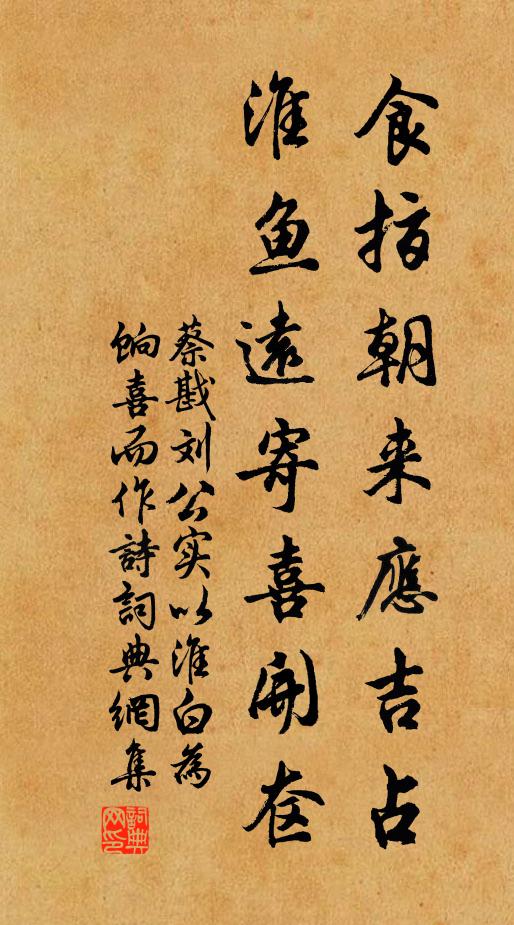 食指朝来應吉占
淮鱼遠寄喜開奁
蔡戡刘公实以淮白為
餉喜而作詩詞典網集
詞典
网印